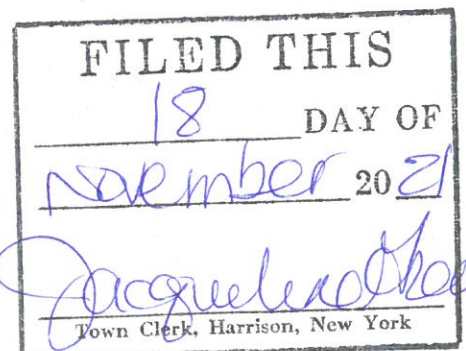 FILED THIS
18 DAY OF
November 20 21
Jacqueline
Town Clerk, Harrison, New York